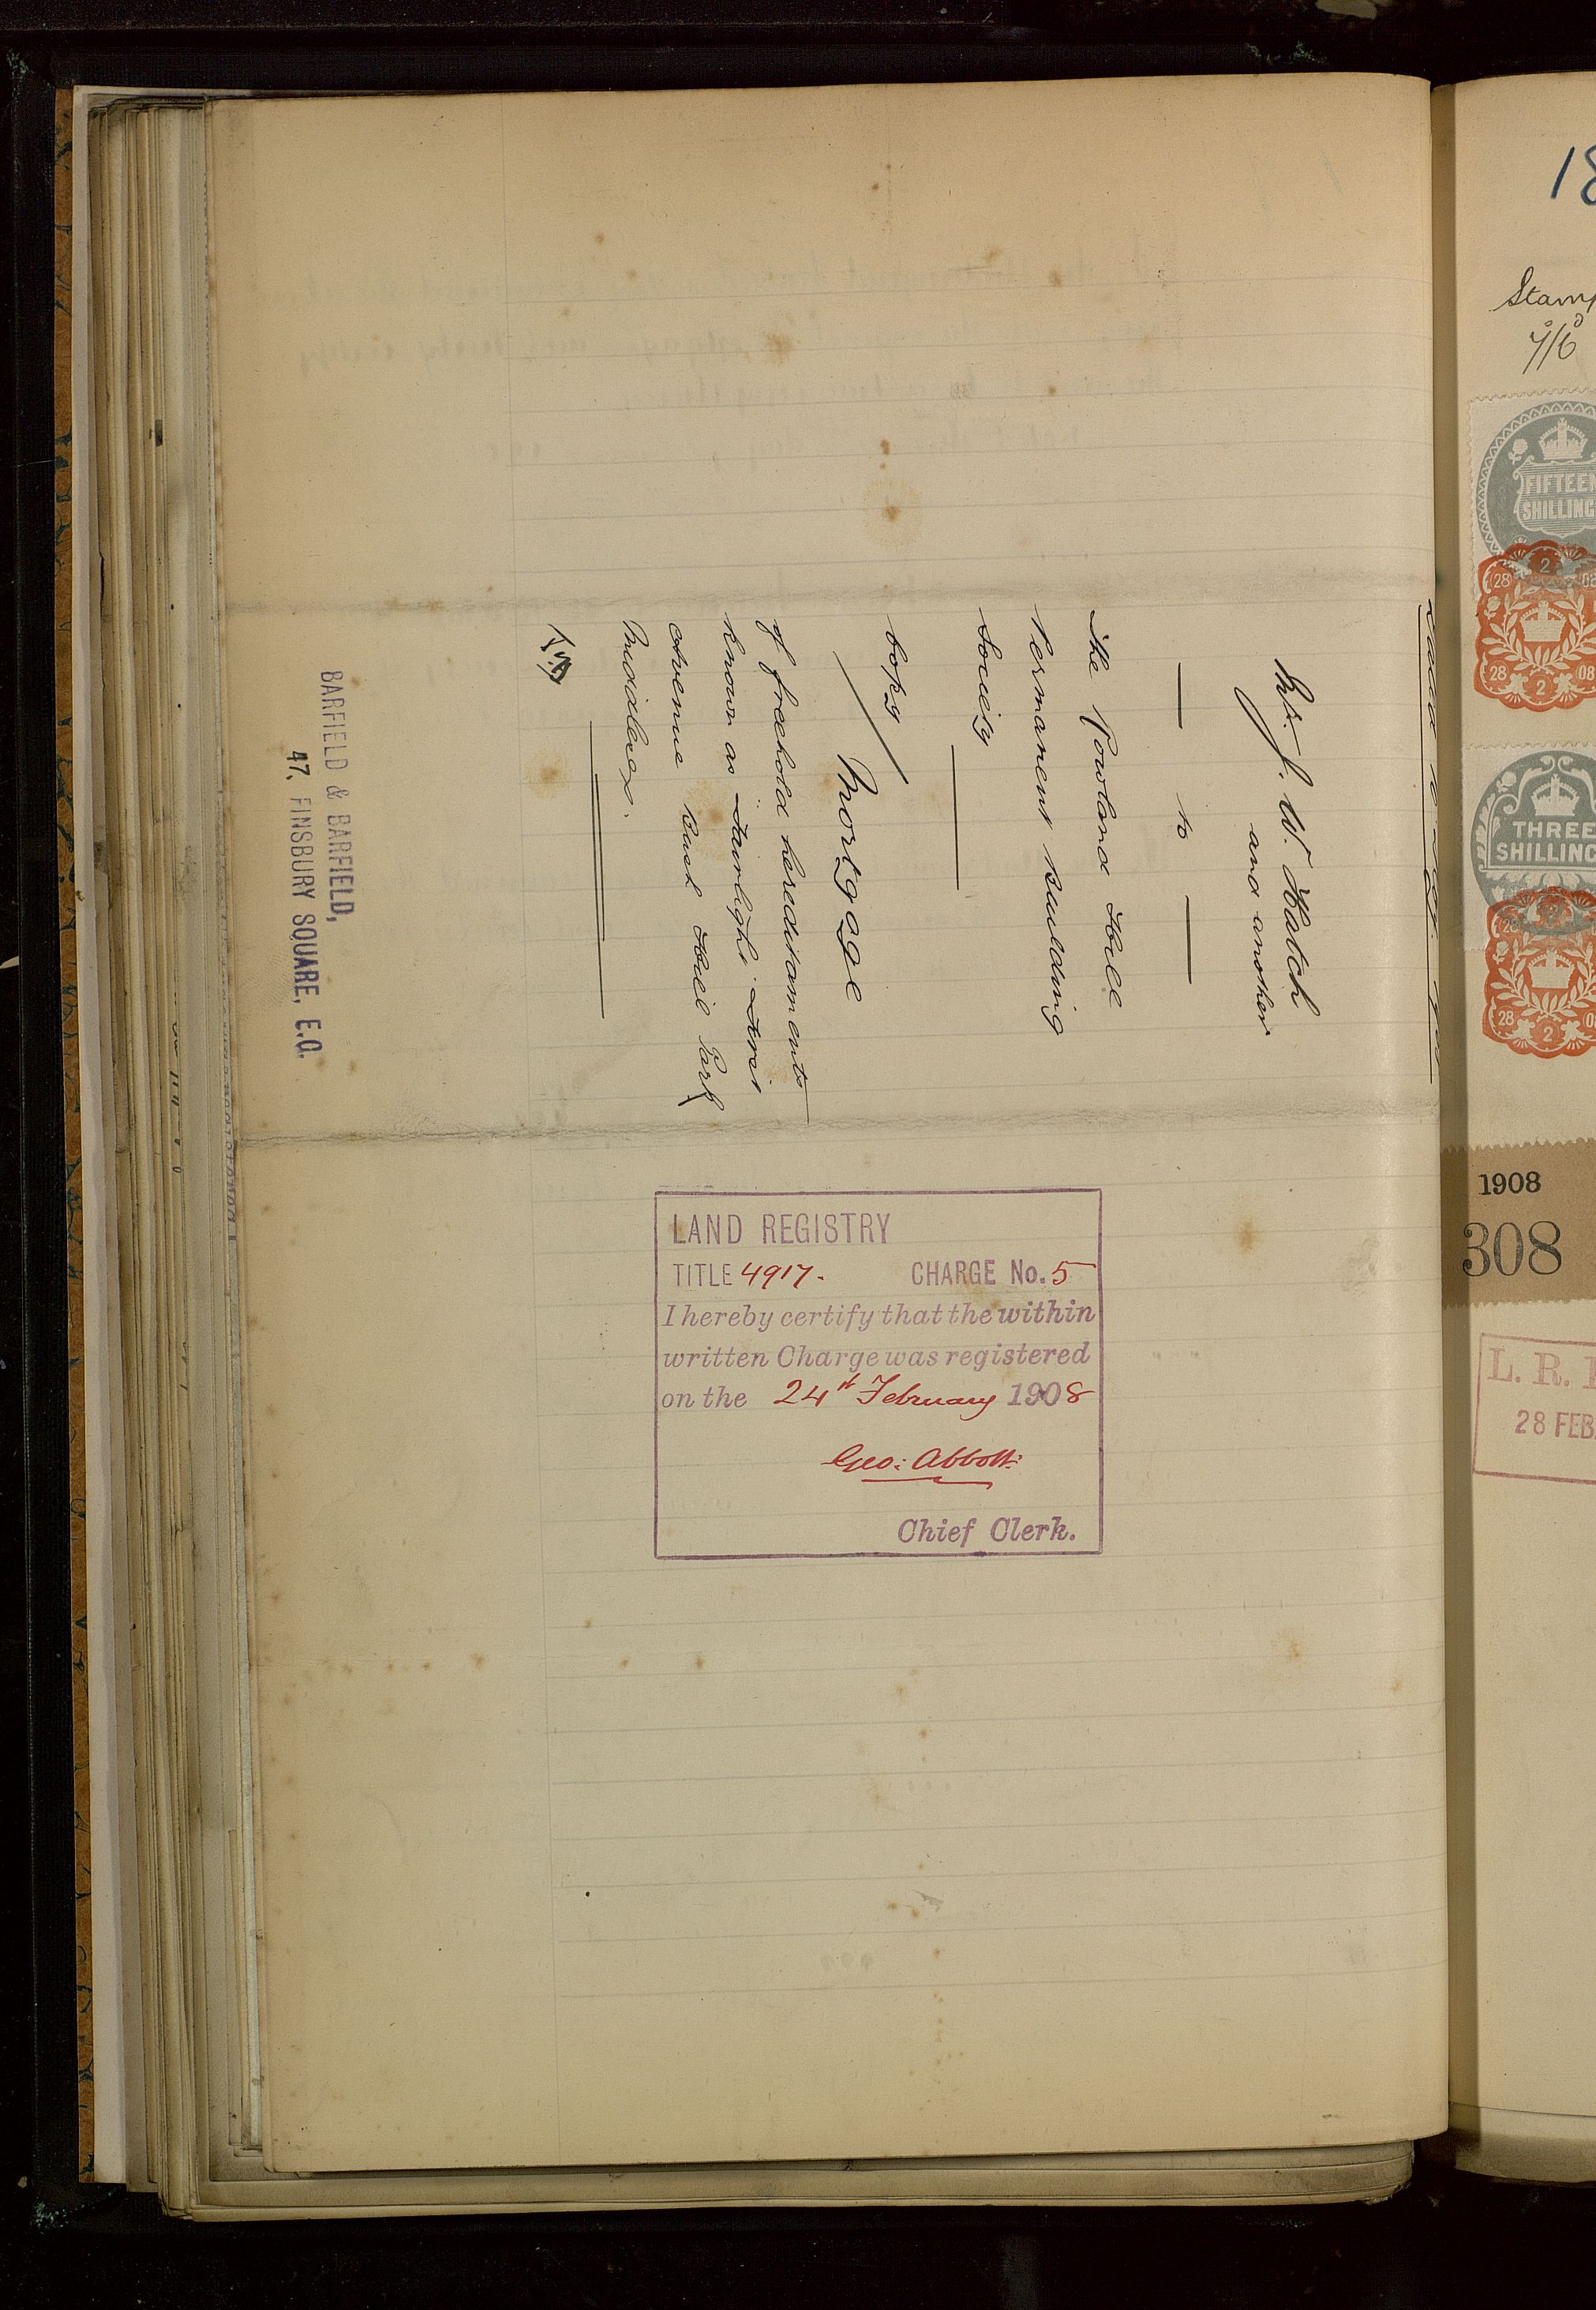 Mr. J. W. Hatch
and another
to
The Rowland Hill
Permanent Building
Society
Copy
Mortgage
of freehold hereditaments
known as Fairlight First
Avenue Bush Hill Park
Middlesex.
BARFIELD & BARFIELD,
47, FINSBURY SQUARE, E.C.
LAND REGISTRY
TITLE 4917. CHARGE No. 5
I hereby certify that the within
written Charge was registered
on the 24th February 1908
Geo: Abbott:
Chief Clerk.
18
Stamp
7/6
FIFTEEN
SHILLING
28 2 08
28 2 08
THREE
SHILLING
28
28 2
1908
308
L. R.
28 FEB.